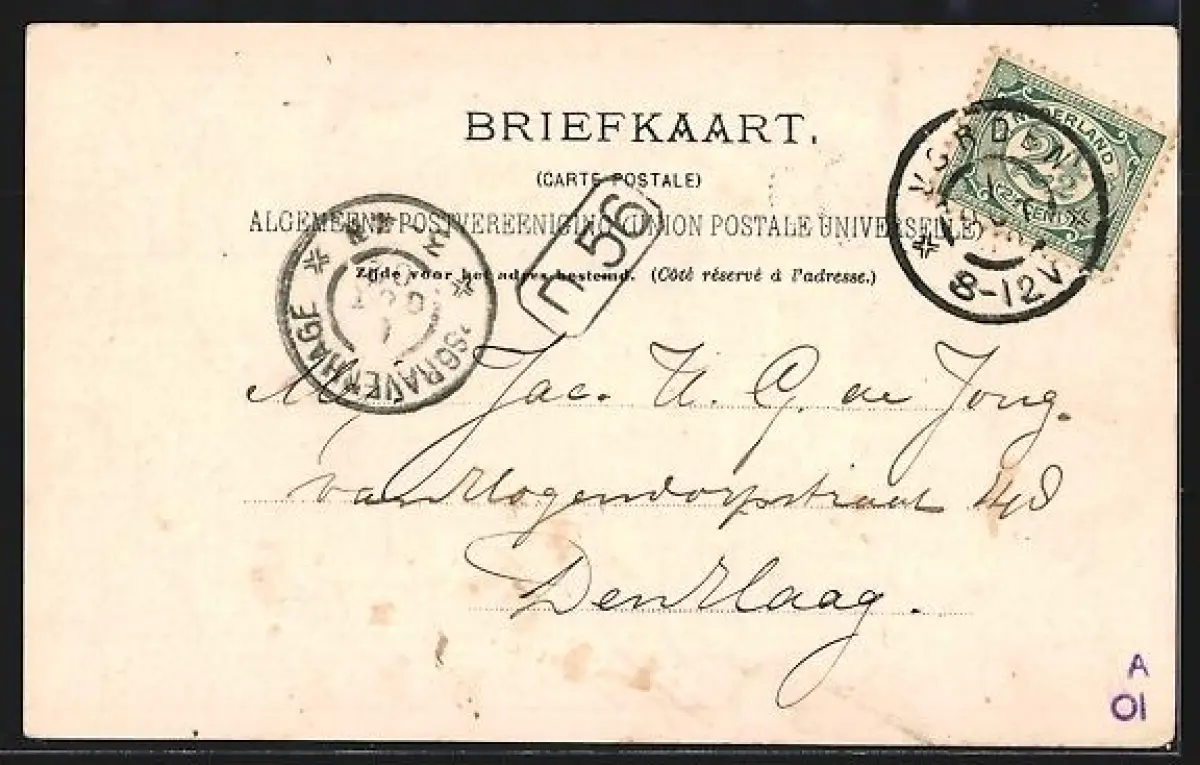 BRIEFKAART.
(CARTE POSTALE)
ALGEMEENE POSTVEREENIGING (UNION POSTALE UNIVERSELLE)
Zijde voor het adres bestemd. (Côté réservé à l'adresse.)
NEDERLAND
2½
CENT
VORDEN
8-12V
'SGRAVENHAGE
56
M Jac. H. G. de Jong.
van Hogendorpstraat 148
Den Haag.
A
01